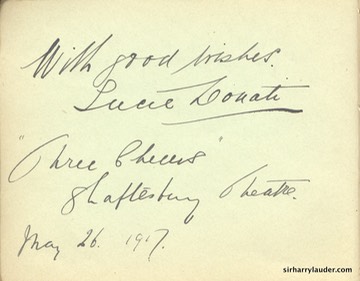 With good wishes.
Lucie Donati
"Three Cheers"
Shaftesbury Theatre.
May 26. 1917.
sirharrylauder.com